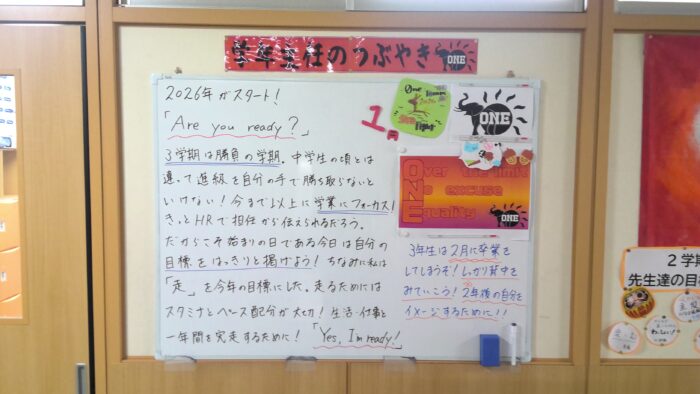 学年主任のつぶやき
ONE
2026年がスタート!
「Are you ready?」
3学期は勝負の学期。中学生の頃とは
違って進級を自分の手で勝ち取らないと
いけない!今まで以上に学業にフォーカス!
きっとHRで担任から伝えられるだろう。
だからこそ始まりの日である今日は自分の
目標をはっきりと掲げよう!ちなみに私は
「走」を今年の目標にした。走るためには
スタミナとペース配分が大切!生活・仕事と
一年間を完走するために!「Yes, I'm ready!」
1月
One Team
ONE
Over the limit
No excuse
Equality
ONE
3年生は2月に卒業を
してしまうぞ!しっかり背中を
みていこう!2年後の自分を
イメージするために!!
2学期
先生達の目